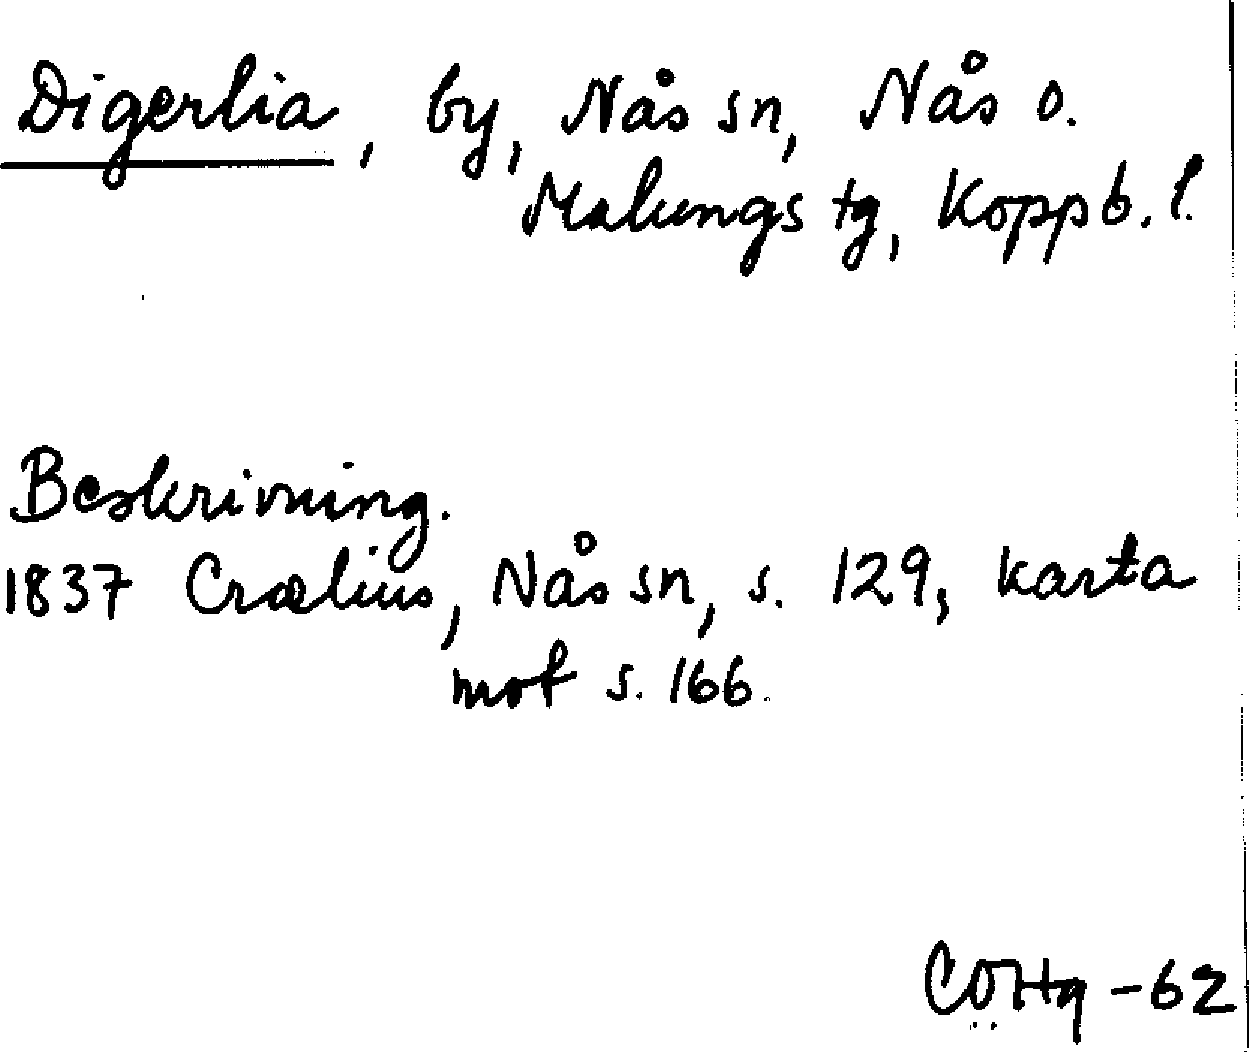 Digerlia, by, Nås sn, Nås o.
Malungs tg, Koppb. l.
Beskrivning.
1837 Crælius, Nås sn, s. 129, karta
mot s. 166.
-62